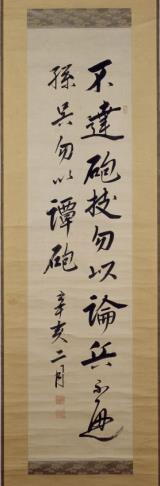 不達砲技勿以論兵不通
孫呉勿以譚砲 辛亥二月